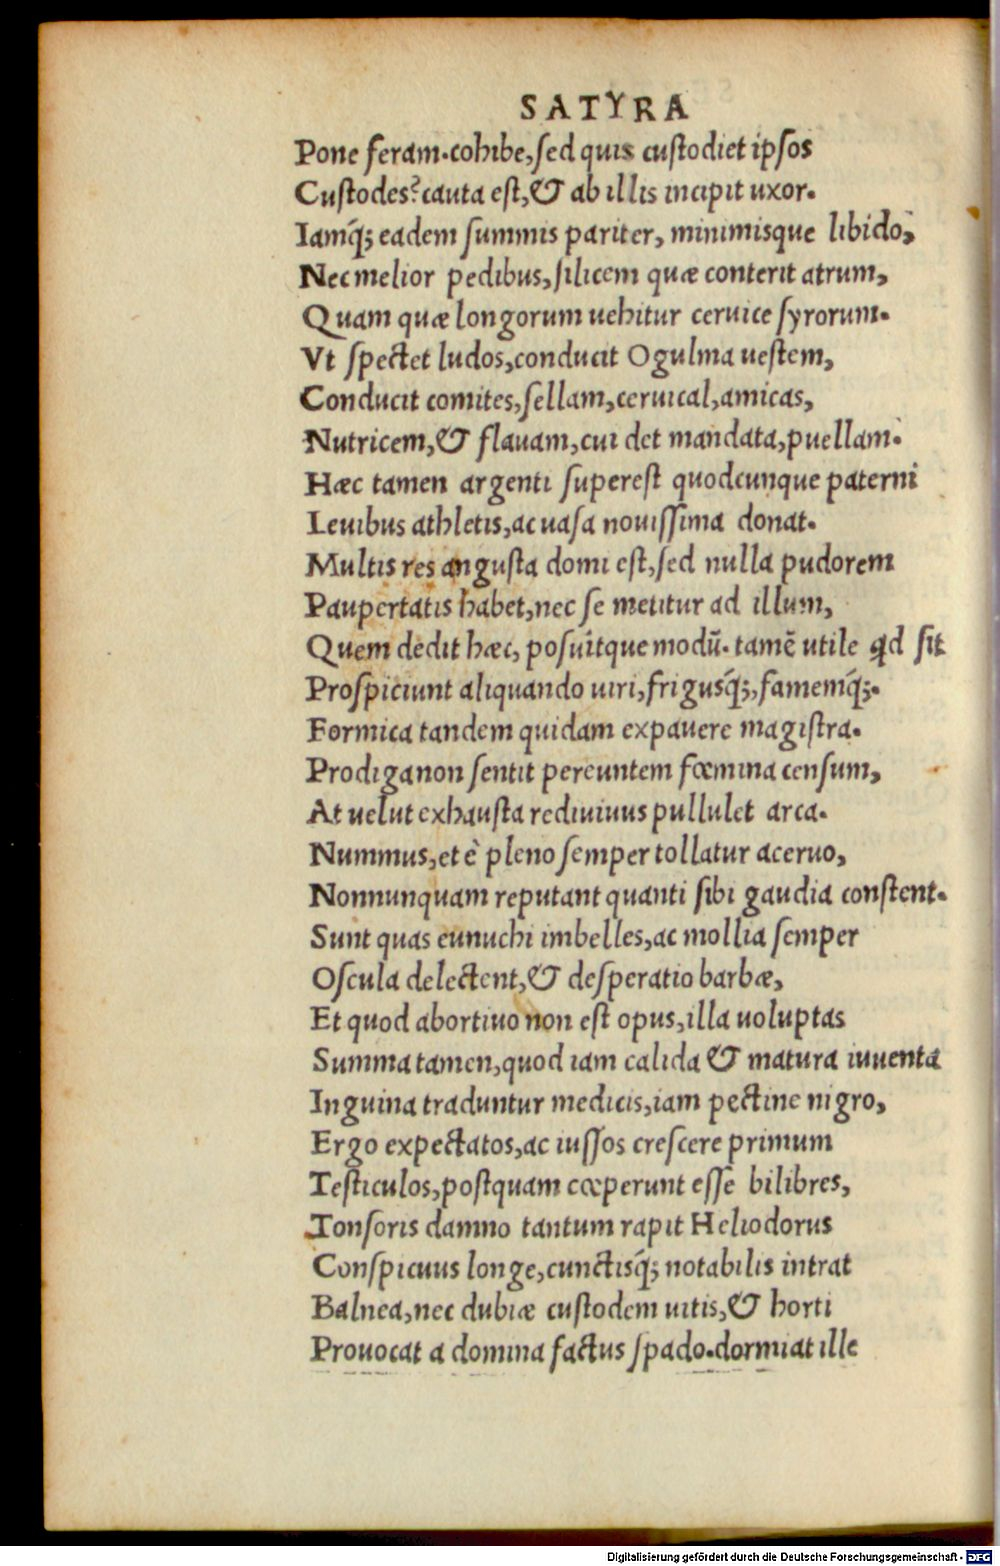 SATYRA
Pone feram.cohibe,ſed quis cuſtodiet ipſos
Cuſtodes? cauta eſt,& ab illis incipit uxor.
Iamq́; eadem ſummis pariter, minimisque libido,
Nec melior pedibus,ſilicem quæ conterit atrum,
Quam quæ longorum uehitur ceruice ſyrorum.
Vt ſpectet ludos,conducit Ogulma ueſtem,
Conducit comites,ſellam,ceruical,amicas,
Nutricem,& flauam,cui det mandata,puellam.
Hæc tamen argenti ſupereſt quodcunque paterni
Leuibus athletis,ac uaſa nouiſſima donat.
Multis res anguſta domi eſt,ſed nulla pudorem
Paupertatis habet,nec ſe metitur ad illum,
Quem dedit hæc, poſuitque modū. tamē utile qd ſit
Proſpiciunt aliquando uiri,frigusq́;,famemq́;.
Formica tandem quidam expauere magiſtra.
Prodiga non ſentit pereuntem fœmina cenſum,
At uelut exhauſta rediuiuus pullulet arca.
Nummus,et è pleno ſemper tollatur aceruo,
Nonnunquam reputant quanti ſibi gaudia conſtent.
Sunt quas eunuchi imbelles,ac mollia ſemper
Oſcula delectent,& deſperatio barbæ,
Et quod abortiuo non eſt opus,illa uoluptas
Summa tamen,quod iam calida & matura iuuenta
Inguina traduntur medicis,iam pectine nigro,
Ergo expectatos,ac iuſſos creſcere primum
Teſticulos,poſtquam cœperunt eſſe bilibres,
Tonſoris damno tantum rapit Heliodorus
Conſpicuus longe,cunctisq́; notabilis intrat
Balnea,nec dubiæ cuſtodem uitis,& horti
Prouocat a domina factus ſpado.dormiat ille
Digitalisierung gefördert durch die Deutsche Forschungsgemeinschaft - DFG